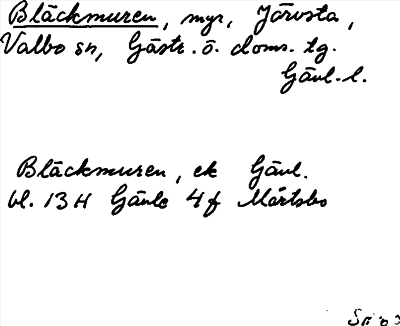 Bläckmuren, myr, Järvsta,
Valbo sn, Gästr. ö. doms. tg.
Gävl. l.
Bläckmuren, ek Gävl.
bl. 13 H Gävle 4 f Mårtsbo